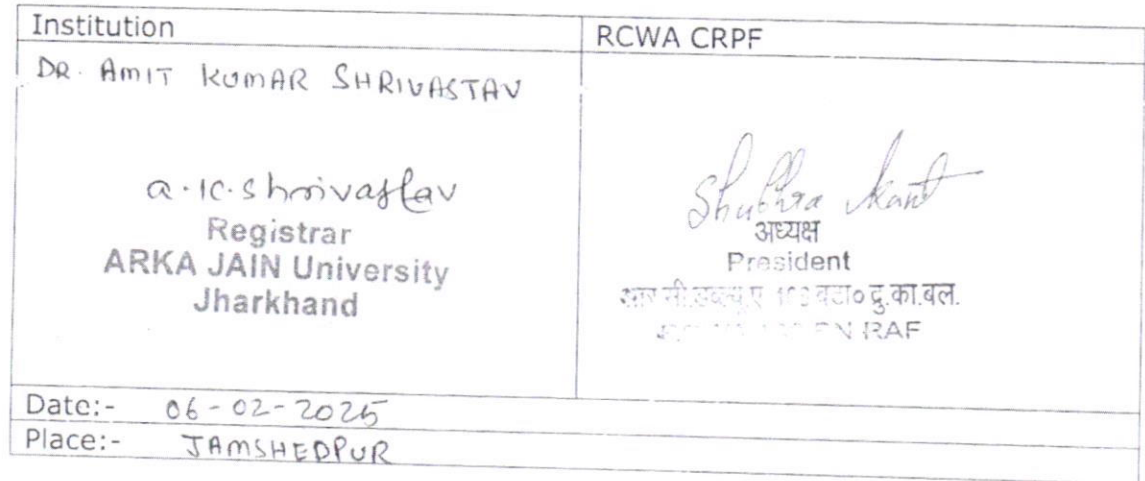 Institution
RCWA CRPF
DR. AMIT KUMAR SHRIVASTAV
a.k.shrivastav
Registrar
ARKA JAIN University
Jharkhand
Shubhra Kant
अध्यक्ष
President
आर.सी.डब्ल्यू.ए. बटा० द्रु.का.बल.
BN RAF
Date:- 06-02-2025
Place:- JAMSHEDPUR